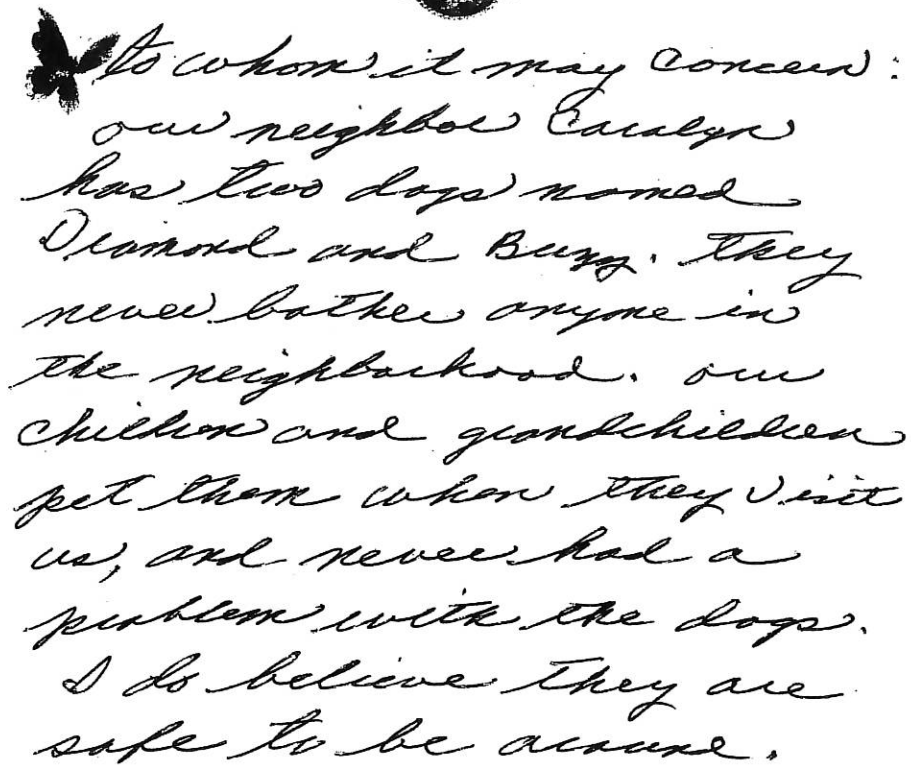 to whom it may concern:
our neighbor Caralyn
has two dogs named
Diamond and Buzzy. They
never bother anyone in
the neighborhood. our
children and grandchildren
pet them when they visit
us, and never had a
problem with the dogs.
I do believe they are
safe to be around.